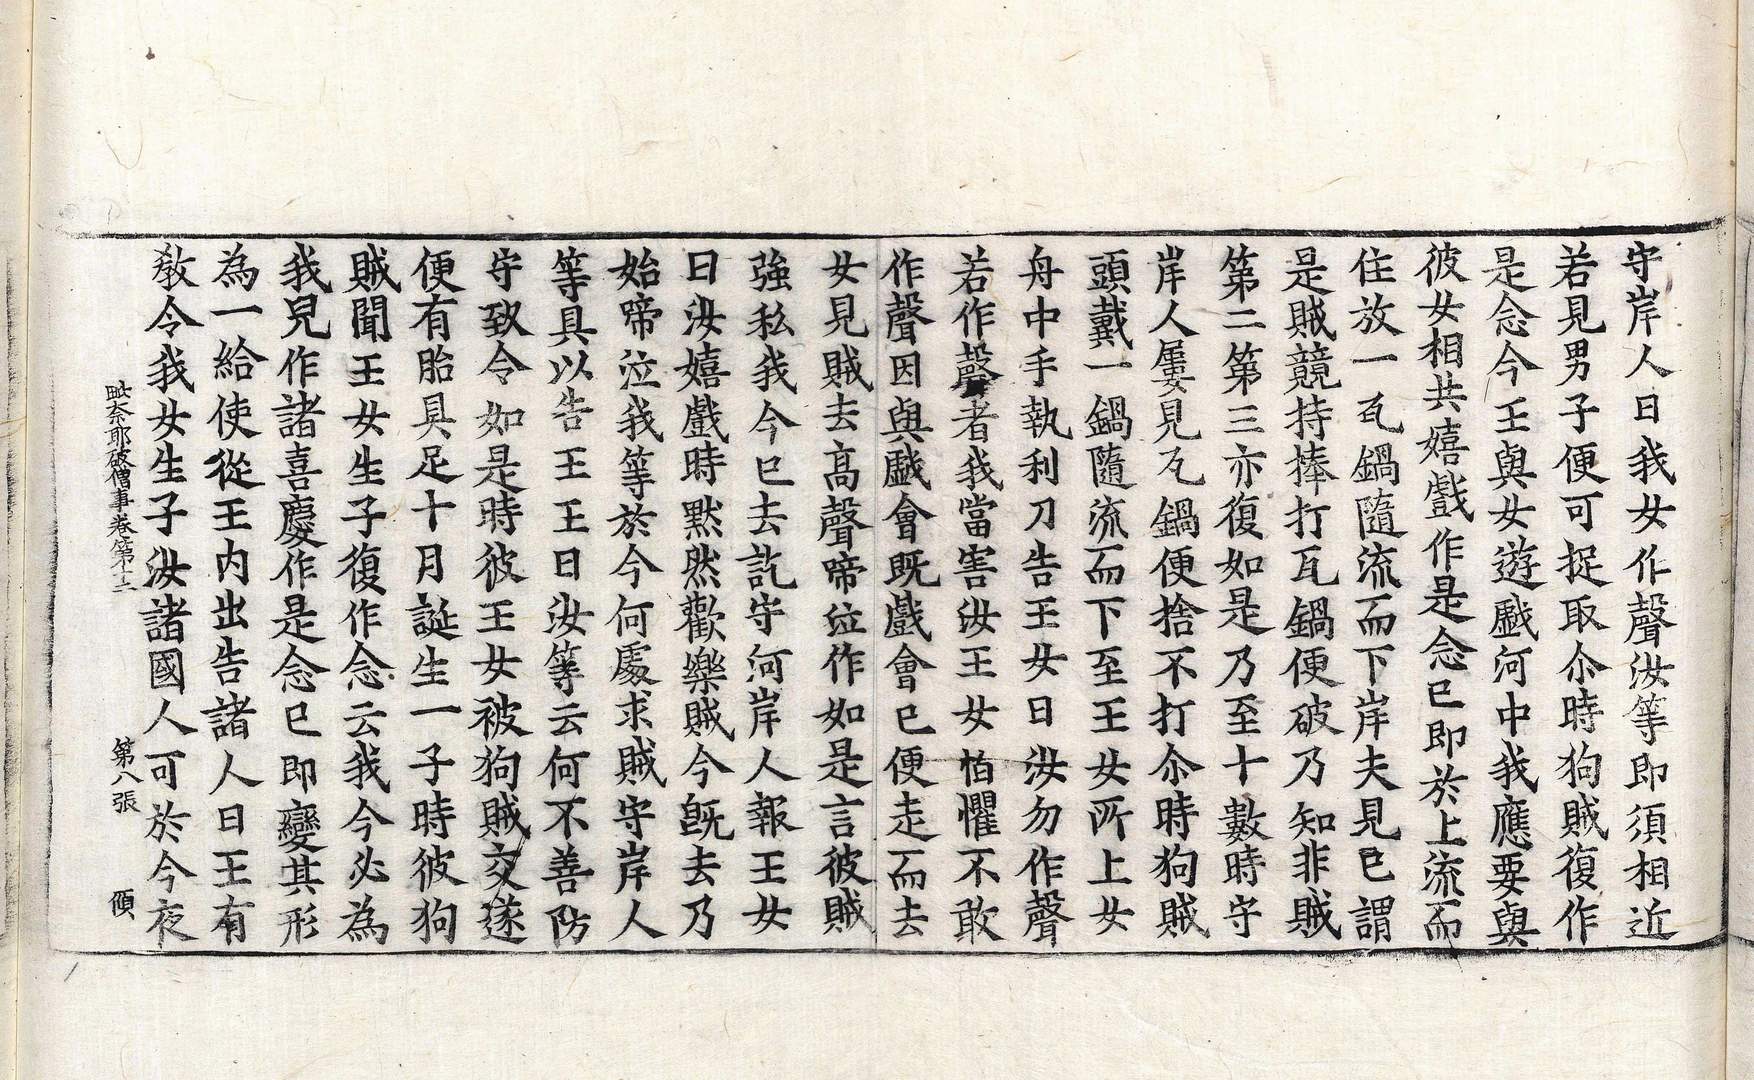 守岸人曰我女作聲汝等即須相近
若見男子便可捉取尒時狗賊復作
是念今王與女遊戲河中我應要與
彼女相共嬉戲作是念已即於上流而
住放一瓦鍋隨流而下岸夫見已謂
是賊競持捧打瓦鍋便破乃知非賊
第二第三亦復如是乃至十數時守
岸人屢見瓦鍋便捨不打尒時狗賊
頭戴一鍋隨流而下至王女所上女
舟中手執利刀告王女曰汝勿作聲
若作聲者我當害汝王女怕懼不敢
作聲因與戲會既戲會已便走而去
女見賊去高聲啼泣作如是言彼賊
強私我今已去訖守河岸人報王女
曰汝嬉戲時默然歡樂賊今旣去乃
始啼泣我等於今何處求賊守岸人
等具以告王王曰汝等云何不善防
守致令如是時彼王女被狗賊交遂
便有胎具足十月誕生一子時彼狗
賊聞王女生子復作念云我今必為
我兒作諸喜慶作是念已即變其形
為一給使從王内出告諸人曰王有
敎令我女生子汝諸國人可於今夜
毗奈耶破僧事卷第十二 第八張 傾